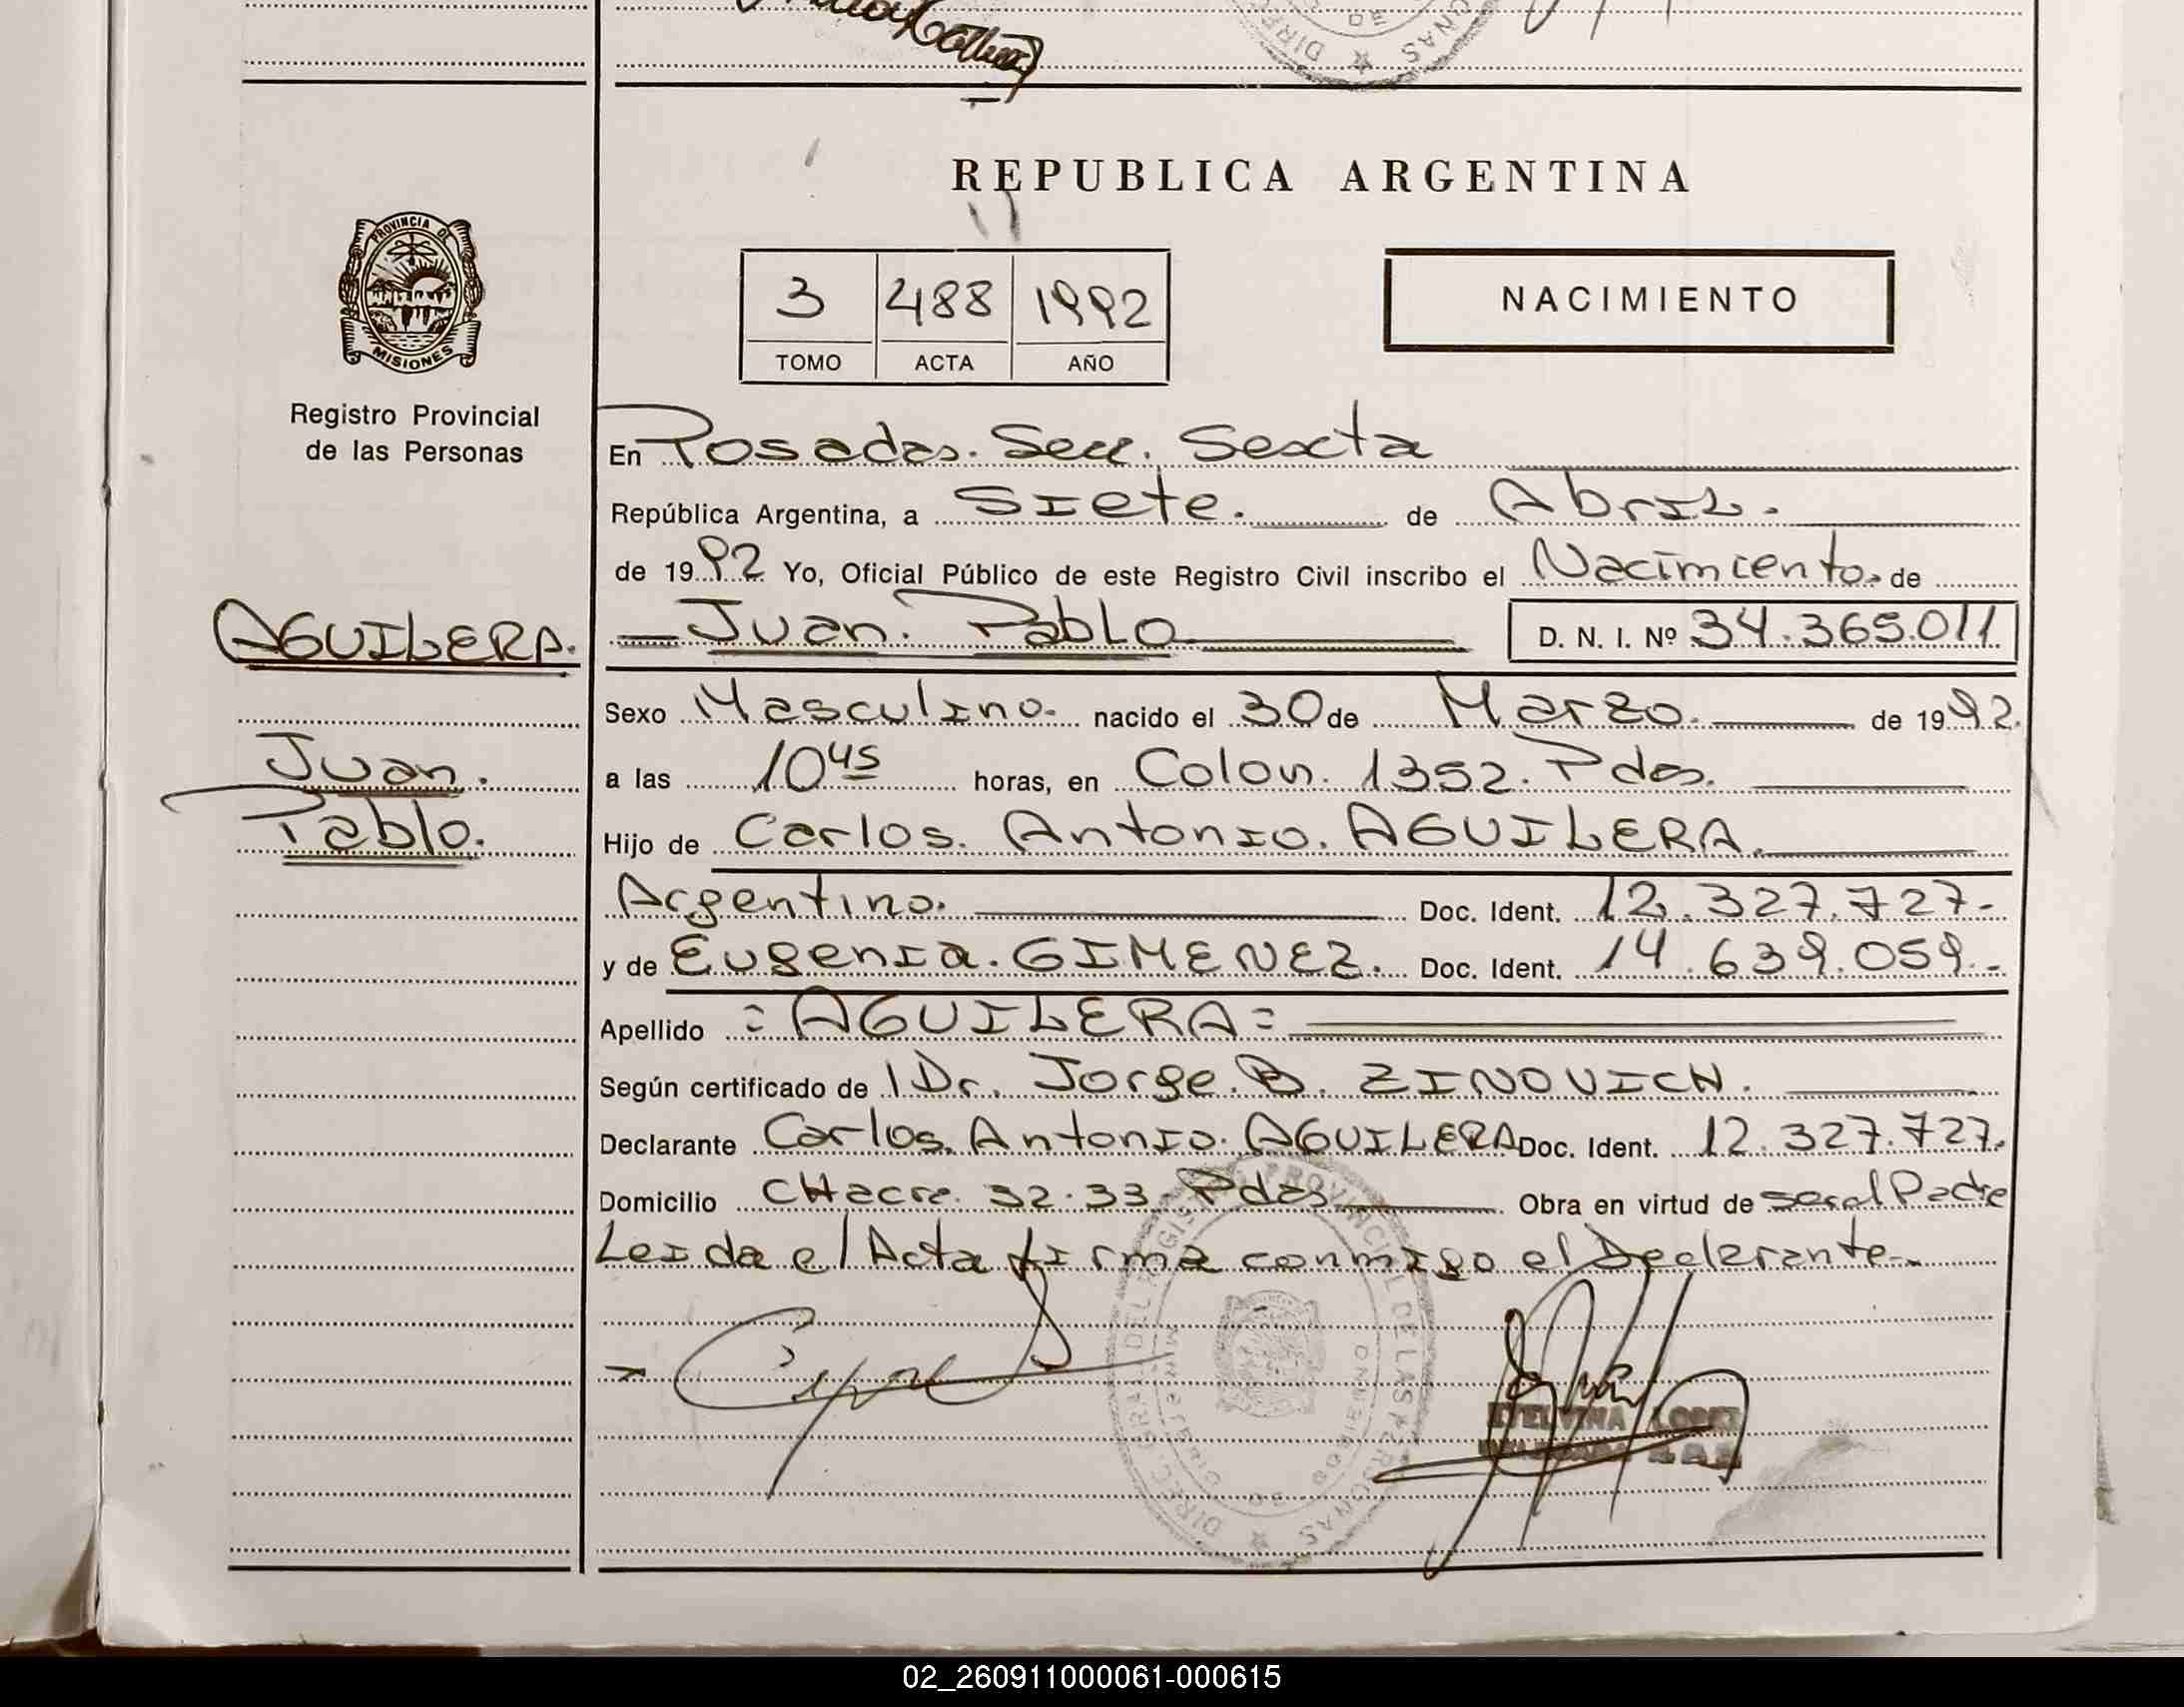 REPUBLICA ARGENTINA
PROVINCIA DE
MISIONES
Registro Provincial
de las Personas
3 488 1992
TOMO ACTA AÑO
NACIMIENTO
En Posadas. Secc. Sexta
República Argentina, a Siete. de Abril.
de 1992 Yo, Oficial Público de este Registro Civil inscribo el Nacimiento de
AGUILERA.
Juan. Pablo D. N. I. Nº 34.365.011
Sexo Masculino. nacido el 30 de Marzo. de 1992.
Juan.
a las 10 45 horas, en Colon. 1352. Pdas.
Pablo.
Hijo de Carlos. Antonio. AGUILERA.
Argentino. Doc. Ident. 12.327.727-
y de Eugenia. GIMENEZ. Doc. Ident. 14.639.059-
Apellido =AGUILERA=
Según certificado de Dr. Jorge. B. ZINOVICH.
Declarante Carlos. Antonio. AGUILERA Doc. Ident. 12.327.727.
Domicilio CHacra. 32-33. Pdas Obra en virtud de ser el Padre
Leida el Acta firma conmigo el Declarante.
ETELVINA LOPEZ
02_260911000061-000615